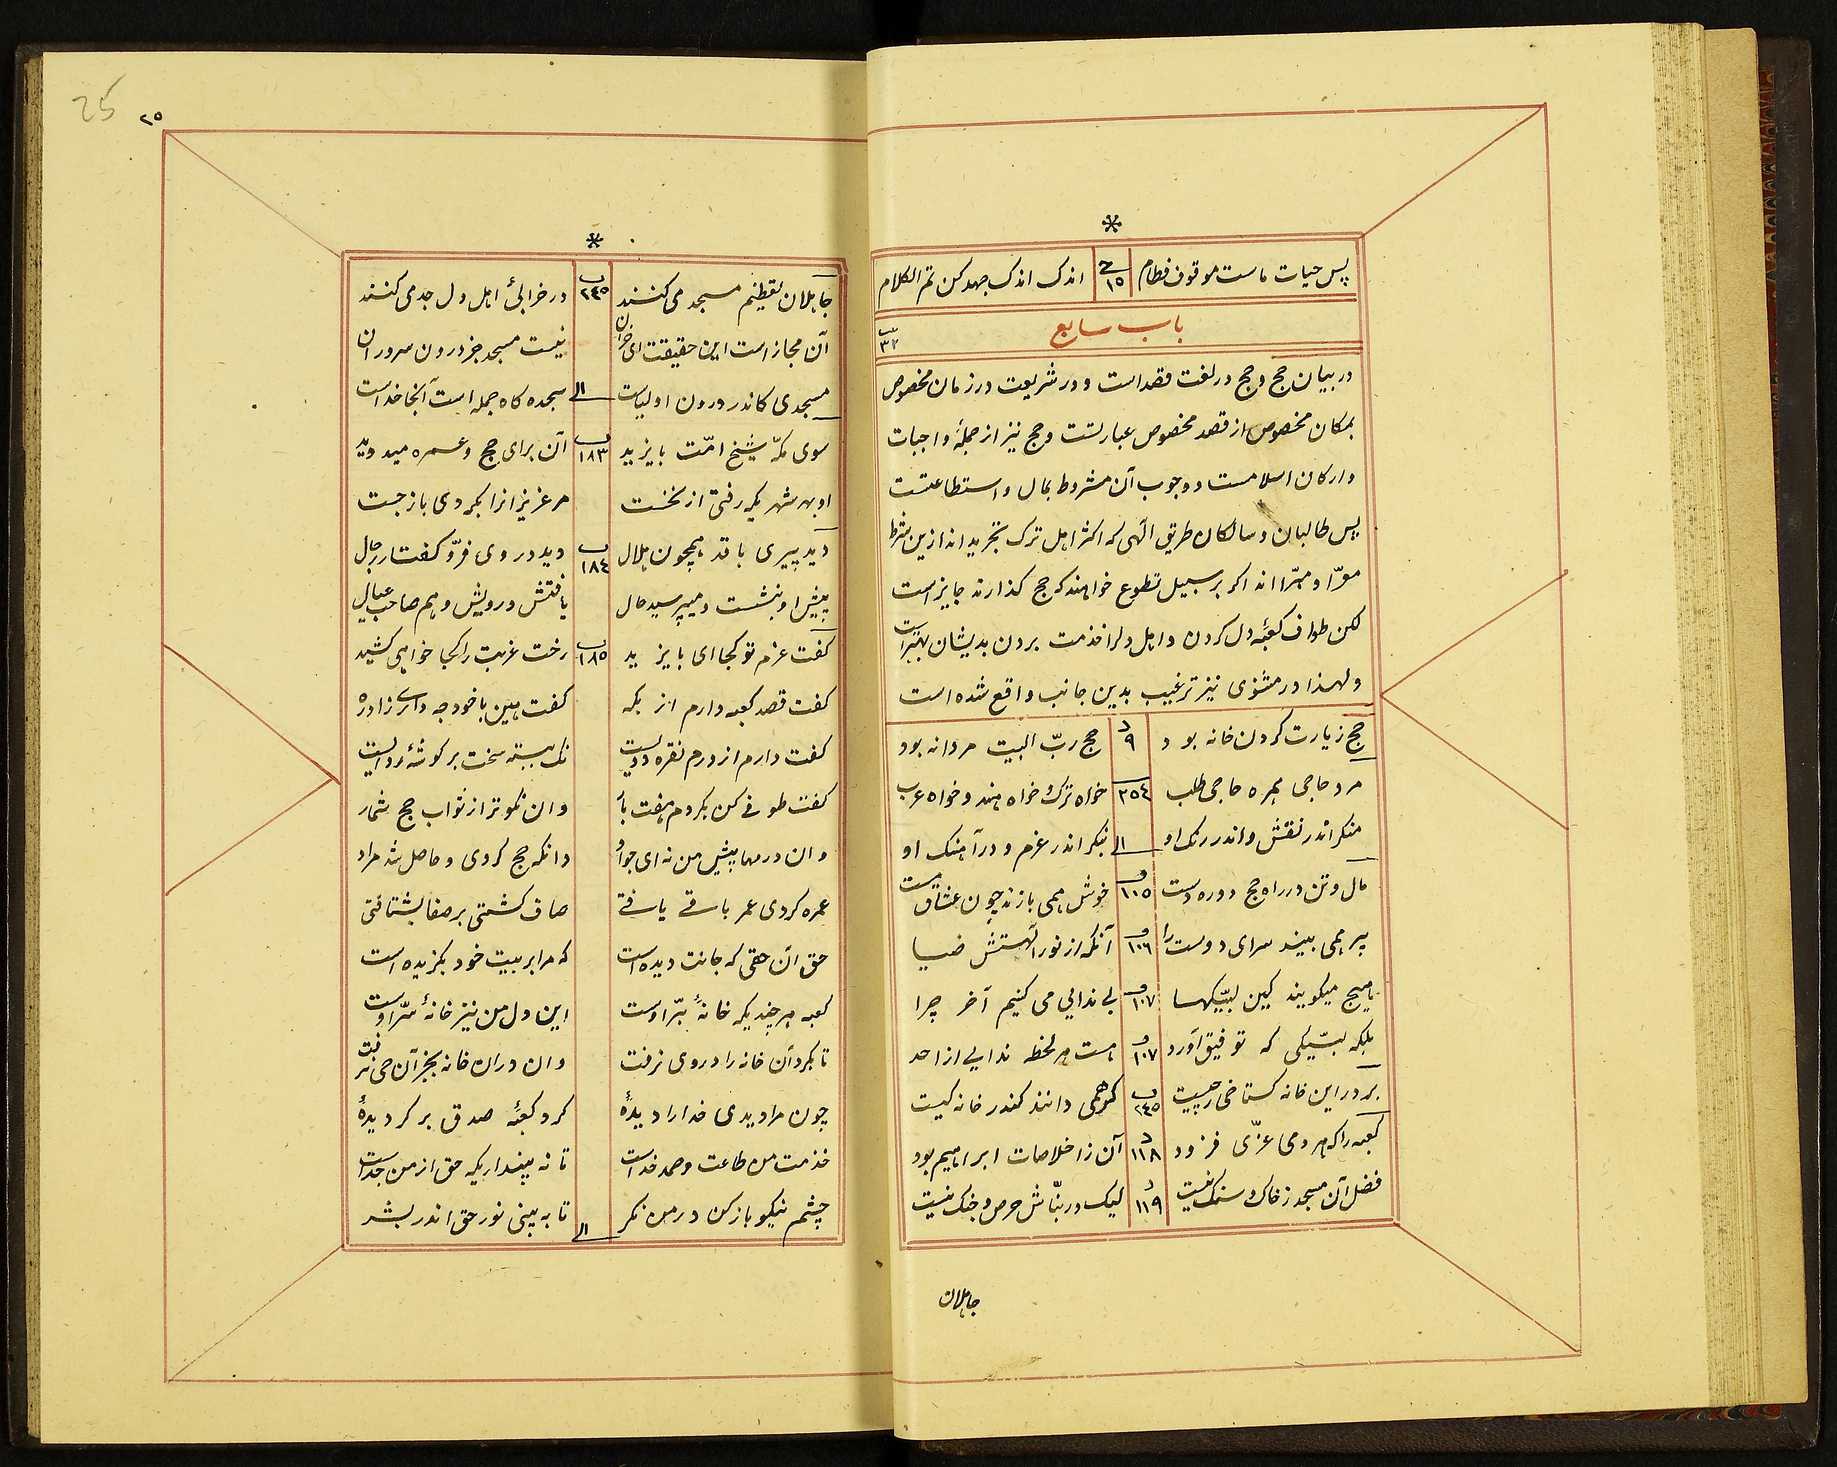 *
پس حیات ماست موقوف فطام ح ۱۵ اندک اندک جهد کن تم الکلام
باب سابع ۳۲
در بیان حج و حج در لغت قصد است و در شریعت در زمان مخصوص
بمکان مخصوص از قصد مخصوص عبارتست و حج نیز از جملهٔ واجبات
وارکان اسلامست و وجوب آن مشروط بمال و استطاعتست
پس طالبان و سالکان طریق الهی که اکثر اهل ترک تجریدانداز ین شرط
معرّا و مبرّا اند اکر بر سبیل تطوع خواهند که حج کذارند جایز است
لکن طواف کعبهٔ دل کردن و اهل دلرا خذمت بردن بدیشان بهتر است
ولهذا در مثنوی نیز ترغیب بدین جانب واقع شده است
حج زیارت کردن خانه بود د ۹ حج ربّ البیت مردانه بود
مرد حاجی همره حاجی طلب ۲۵٤ خواه ترک و خواه هند و خواه عرب
منکر اندر نقش و اندر رنک او الی بنکر اندر عزم و در آهنک او
مال وتن در راه حج دوره دست و ۱۰۵ خوش همی بازند چون عشاق مست
پیر همی بیند سرای دوست را و ۱۰٦ آنکه از نور آلهستش ضیا
یا میج میکویند کین لبیکها و ۱۰۷ بی ندایی می کنیم آخر چرا
بلکه لبیکی که توفیق آورد و ۱۰۷ هست هر لحظه ندایی از احد
بر در این خانه کستاخی ز چیست ب ۲٤۵ کر همی دانند کندر خانه کیست
کعبه را که هر دمی عزّی فزود د ۱۱۸ آن ز اخلاصات ابراهیم بود
فضل آن مسجد ز خاک و سنک نیست د ۱۱۹ لیک در بنّاش حرص و جنک نیست
جاهلان
25
۲۵
*
جاهلان تعظیم مسجد می کنند ب ۲٤۵ در خرابیٔ اهل دل جد می کنند
آن مجاز است این حقیقت ای خران نیست مسجد جز درون سروران
مسجدی کاندر درون اولیاست الی سجده کاه جمله است آنجا خداست
سوی مکّه شیخ امّت بایزید ب ۱۸۳ از برای حج و عمره میدوید
او بهر شهریکه رفتی از نخست مر عزیزانرا بکردی بازجست
دید پیری با قد همچون هلال ب ۱۸٤ دید در وی فرّ و کفتار رجال
پیش او بنشست و میپرسید حال یافتش درویش و هم صاحب عیال
کفت عزم تو کجا ای بایزید ب ۱۸۵ رخت غربت را کجا خواهی کشید
کفت قصد کعبه دارم از بکه کفت هین با خود چه داری زاد ره
کفت دارم از درم نقره دویست نک ببسته سخت بر کوشهٔ ردایست
کفت طوفی کن بکردم هفت بار وان نکوتر از ثواب حج شمار
وان درمها پیش من نه ای جواد دانکه حج کردی و حاصل شد مراد
عمره کردی عمر باقی یافتی صاف کشتی بر صفا بشتافتی
حق آن حقی که جانت دیده است که مرا بر بیت خود بکزیده است
کعبه هر چندیکه خانهٔ برّ اوست این دل من نیز خانهٔ سرّ اوست
تا بکرد آن خانه را در وی نرفت وان در ان خانه بجز آن حی نرفت
چون مرا دیدی خدا را دیدهٔ کرد کعبهٔ صدق بر کردیدهٔ
خذمت من طاعت و حمد خداست تا نه پنداریکه حق از من جداست
چشم نیکو باز کن در من نکر الی تا به بینی نور حق اندر بشر